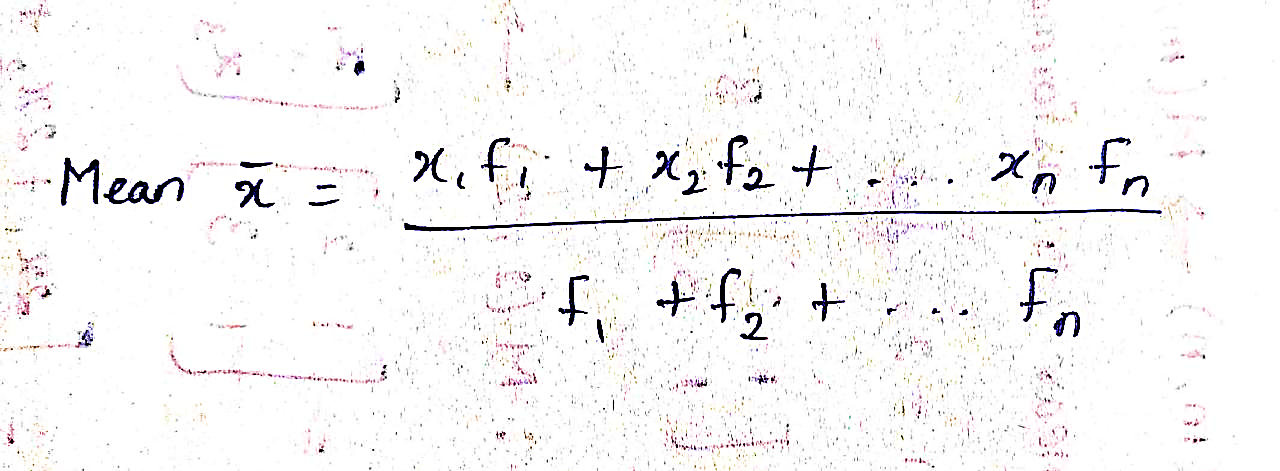 Mean x̄ = (x₁f₁ + x₂f₂ + .... xₙ fₙ) / (f₁ + f₂ + .... fₙ)